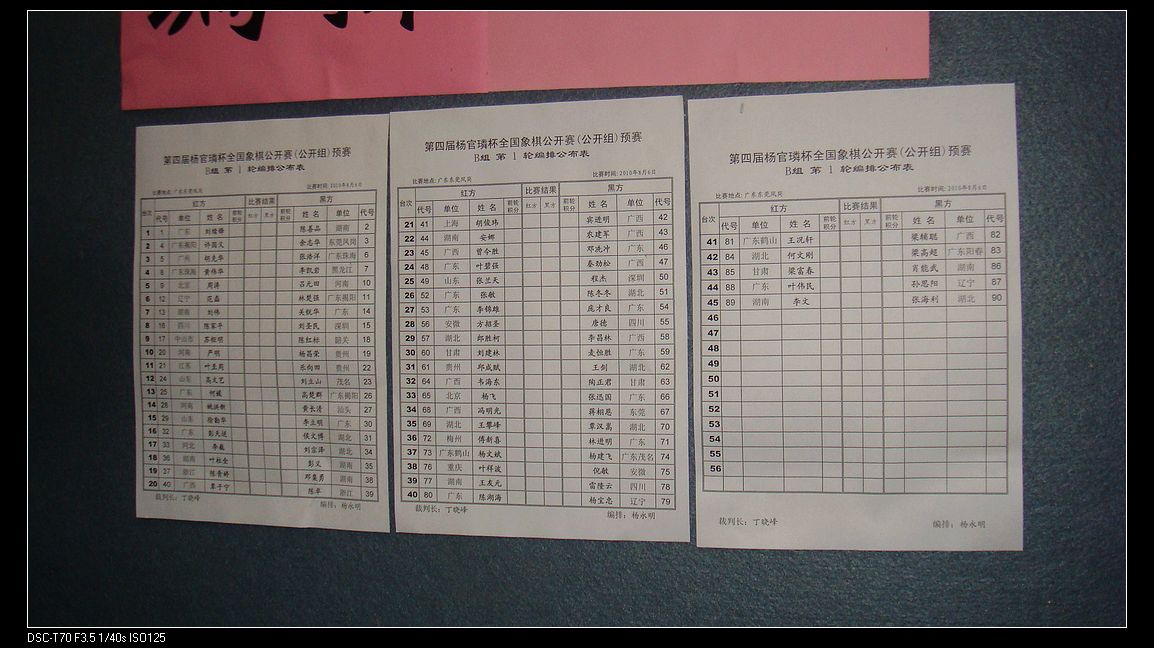 第四届杨官璘杯全国象棋公开赛(公开组)预赛
B组 第 1 轮编排公布表
比赛地点: 广东东莞凤岗 比赛时间: 2010年8月6日
台次 红方 比赛结果 黑方
代号 单位 姓名 前轮积分 红方 黑方 前轮积分 姓名 单位 代号
1 1 广东 陈善品 湖南 2
2 4 广东揭阳 许国义 余志华 东莞凤岗 3
3 5 广州 胡克华 张浩洋 广东珠海 6
4 8 广东珠海 黄伟华 李凯岩 黑龙江 7
5 9 北京 周涛 吕元田 河南 10
6 12 辽宁 范磊 林楚强 广东揭阳 11
7 13 湖南 刘伟 关锐华 广东 14
8 16 四川 陈家平 刘圣民 深圳 15
9 17 中山市 陈红标 韶关 18
10 20 河南 严明 杨昌荣 贵州 19
11 21 江苏 张向田 贵州 22
12 24 山东 高文艺 刘立山 茂名 23
13 25 广东 何媛 高楚群 广东揭阳 26
14 28 河南 姚洪新 黄长清 汕头 27
15 29 山东 徐勤华 李立明 广东 30
16 32 广东 彭天送 侯文博 湖北 31
17 33 河北 李巍 刘宗泽 湖北 34
18 36 湖南 叶杜全 彭义 湖南 35
19 37 浙江 陈青婷 邓棠勇 湖南 38
20 40 广西 覃子宁 陈卓 浙江 39
裁判长: 丁晓峰 编排: 杨永明
第四届杨官璘杯全国象棋公开赛(公开组)预赛
B组 第 1 轮编排公布表
比赛地点: 广东东莞凤岗 比赛时间: 2010年8月6日
台次 红方 比赛结果 黑方
代号 单位 姓名 前轮积分 红方 黑方 前轮积分 姓名 单位 代号
21 41 上海 胡俊玮 宾进明 广西 42
22 44 湖南 安娜 农建军 广西 43
23 45 广西 曾令胜 邓冼冲 广东 46
24 48 广东 叶碧强 秦劲松 广西 47
25 49 山东 张兰天 程杰 深圳 50
26 52 广东 张敏 陈冬冬 湖北 51
27 53 广东 李锦雄 庞才良 广东 54
28 56 安徽 方绍圣 唐德 四川 55
29 57 湖北 郎胜柯 李昌林 广西 58
30 60 甘肃 刘建林 麦恒胜 广东 59
31 61 贵州 邱成赋 王剑 湖北 62
32 64 广西 韦海东 陶正君 甘肃 63
33 65 北京 杨飞 张迅国 广东 66
34 68 广西 冯明光 蒋相恩 东莞 67
35 69 湖北 王攀峰 覃汉嵩 湖北 70
36 72 梅州 傅新喜 林进明 广东 71
37 73 广东鹤山 杨文斌 杨建飞 广东茂名 74
38 76 重庆 叶祥波 倪敏 安徽 75
39 77 湖南 王友元 雷隆云 四川 78
40 80 广东 陈湖海 杨宝忠 辽宁 79
裁判长: 丁晓峰 编排: 杨永明
第四届杨官璘杯全国象棋公开赛(公开组)预赛
B组 第 1 轮编排公布表
比赛地点: 广东东莞凤岗 比赛时间: 2010年8月6日
台次 红方 比赛结果 黑方
代号 单位 姓名 前轮积分 红方 黑方 前轮积分 姓名 单位 代号
41 81 广东鹤山 王况轩 梁辅聪 广西 82
42 84 湖北 何文刚 梁高超 广东阳春 83
43 85 甘肃 梁富春 肖能武 湖南 86
44 88 广东 叶伟民 孙思阳 辽宁 87
45 89 湖南 李文 张海利 湖北 90
46
47
48
49
50
51
52
53
54
55
56
裁判长: 丁晓峰 编排: 杨永明
DSC-T70 F3.5 1/40s ISO125